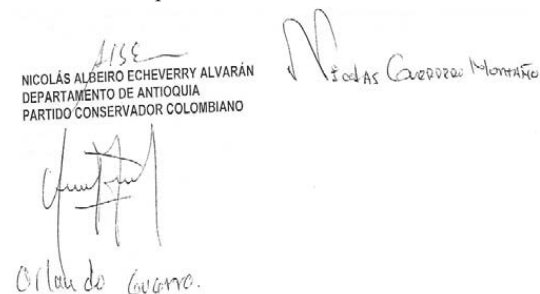 NICOLÁS ALBEIRO ECHEVERRY ALVARÁN
DEPARTAMENTO DE ANTIOQUIA
PARTIDO CONSERVADOR COLOMBIANO
Nicolas Guerrero Montaño
Orlando Guerra.